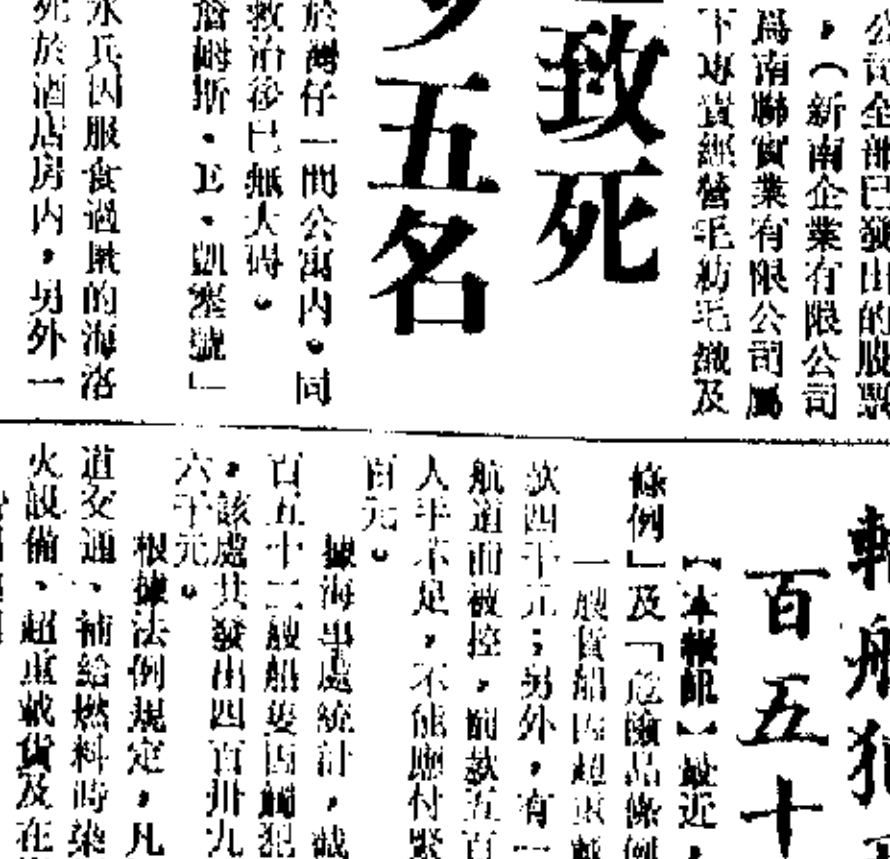 公司全部已發出的股票
，（新南企業有限公司
爲南聯實業有限公司屬
下專責經營毛紡毛織及
致死
五名
於灣仔一間公寓内。同
救治後已無大碍。
詹姆斯・E・凱塞號」
水兵因服食過量的海洛
死於酒店房内，另外一
船犯
百五十
【本報訊】最近，
條例」及「危險品條例
一艘貨船因超重載
款四千元；另外，有一
航道而被控，罰款五百
人手不足，不能應付緊
百元。
據海事處統計，截
百五十二艘船隻因觸犯
，該處共發出四百卅九
六千元。
根據法例規定，凡
道交通、補給燃料時染
火設備、超重載貨及在